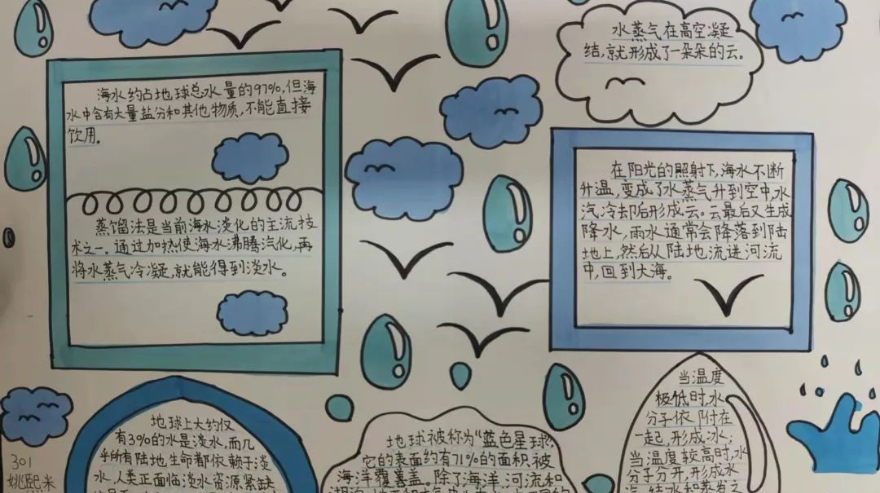 海水约占地球总水量的97%,但海
水中含有大量盐分和其他物质,不能直接
饮用。
蒸馏法是当前海水淡化的主流技
术之一。通过加热使海水沸腾汽化,再
将水蒸气冷凝,就能得到淡水。
水蒸气在高空凝
结,就形成了一朵朵的云。
在阳光的照射下,海水不断
升温,变成了水蒸气升到空中,水
汽冷却后形成云。云最后又生成
降水,雨水通常会降落到陆
地上,然后从陆地流进河流
中,回到大海。
地球上大约仅
有3%的水是淡水,而几
乎所有陆地生命都依赖于淡
水,人类正面临淡水资源紧缺
地球被称为“蓝色星球”,
它的表面约有71%的面积被
海洋覆盖。除了海洋、河流和
当温度
极低时,水
分子依附在
一起,形成冰;
当温度较高时,水
分子分开,形成水
301
姚熙来